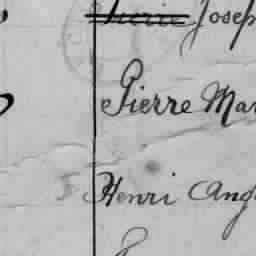 Joseph
Pierre Mar
Henri Ang